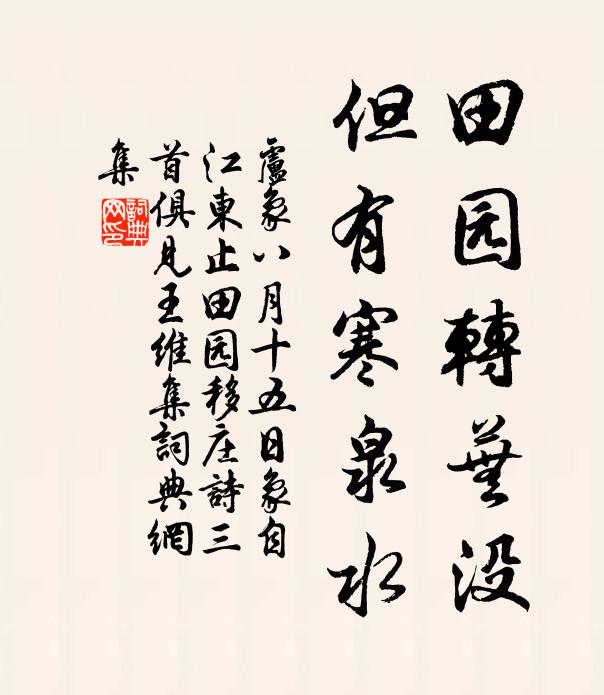 田园轉蕪没
但有寒泉水
盧象八月十五日象自
江東止田园移庄詩三
首俱見王維集詞典網
集
詞典
网印